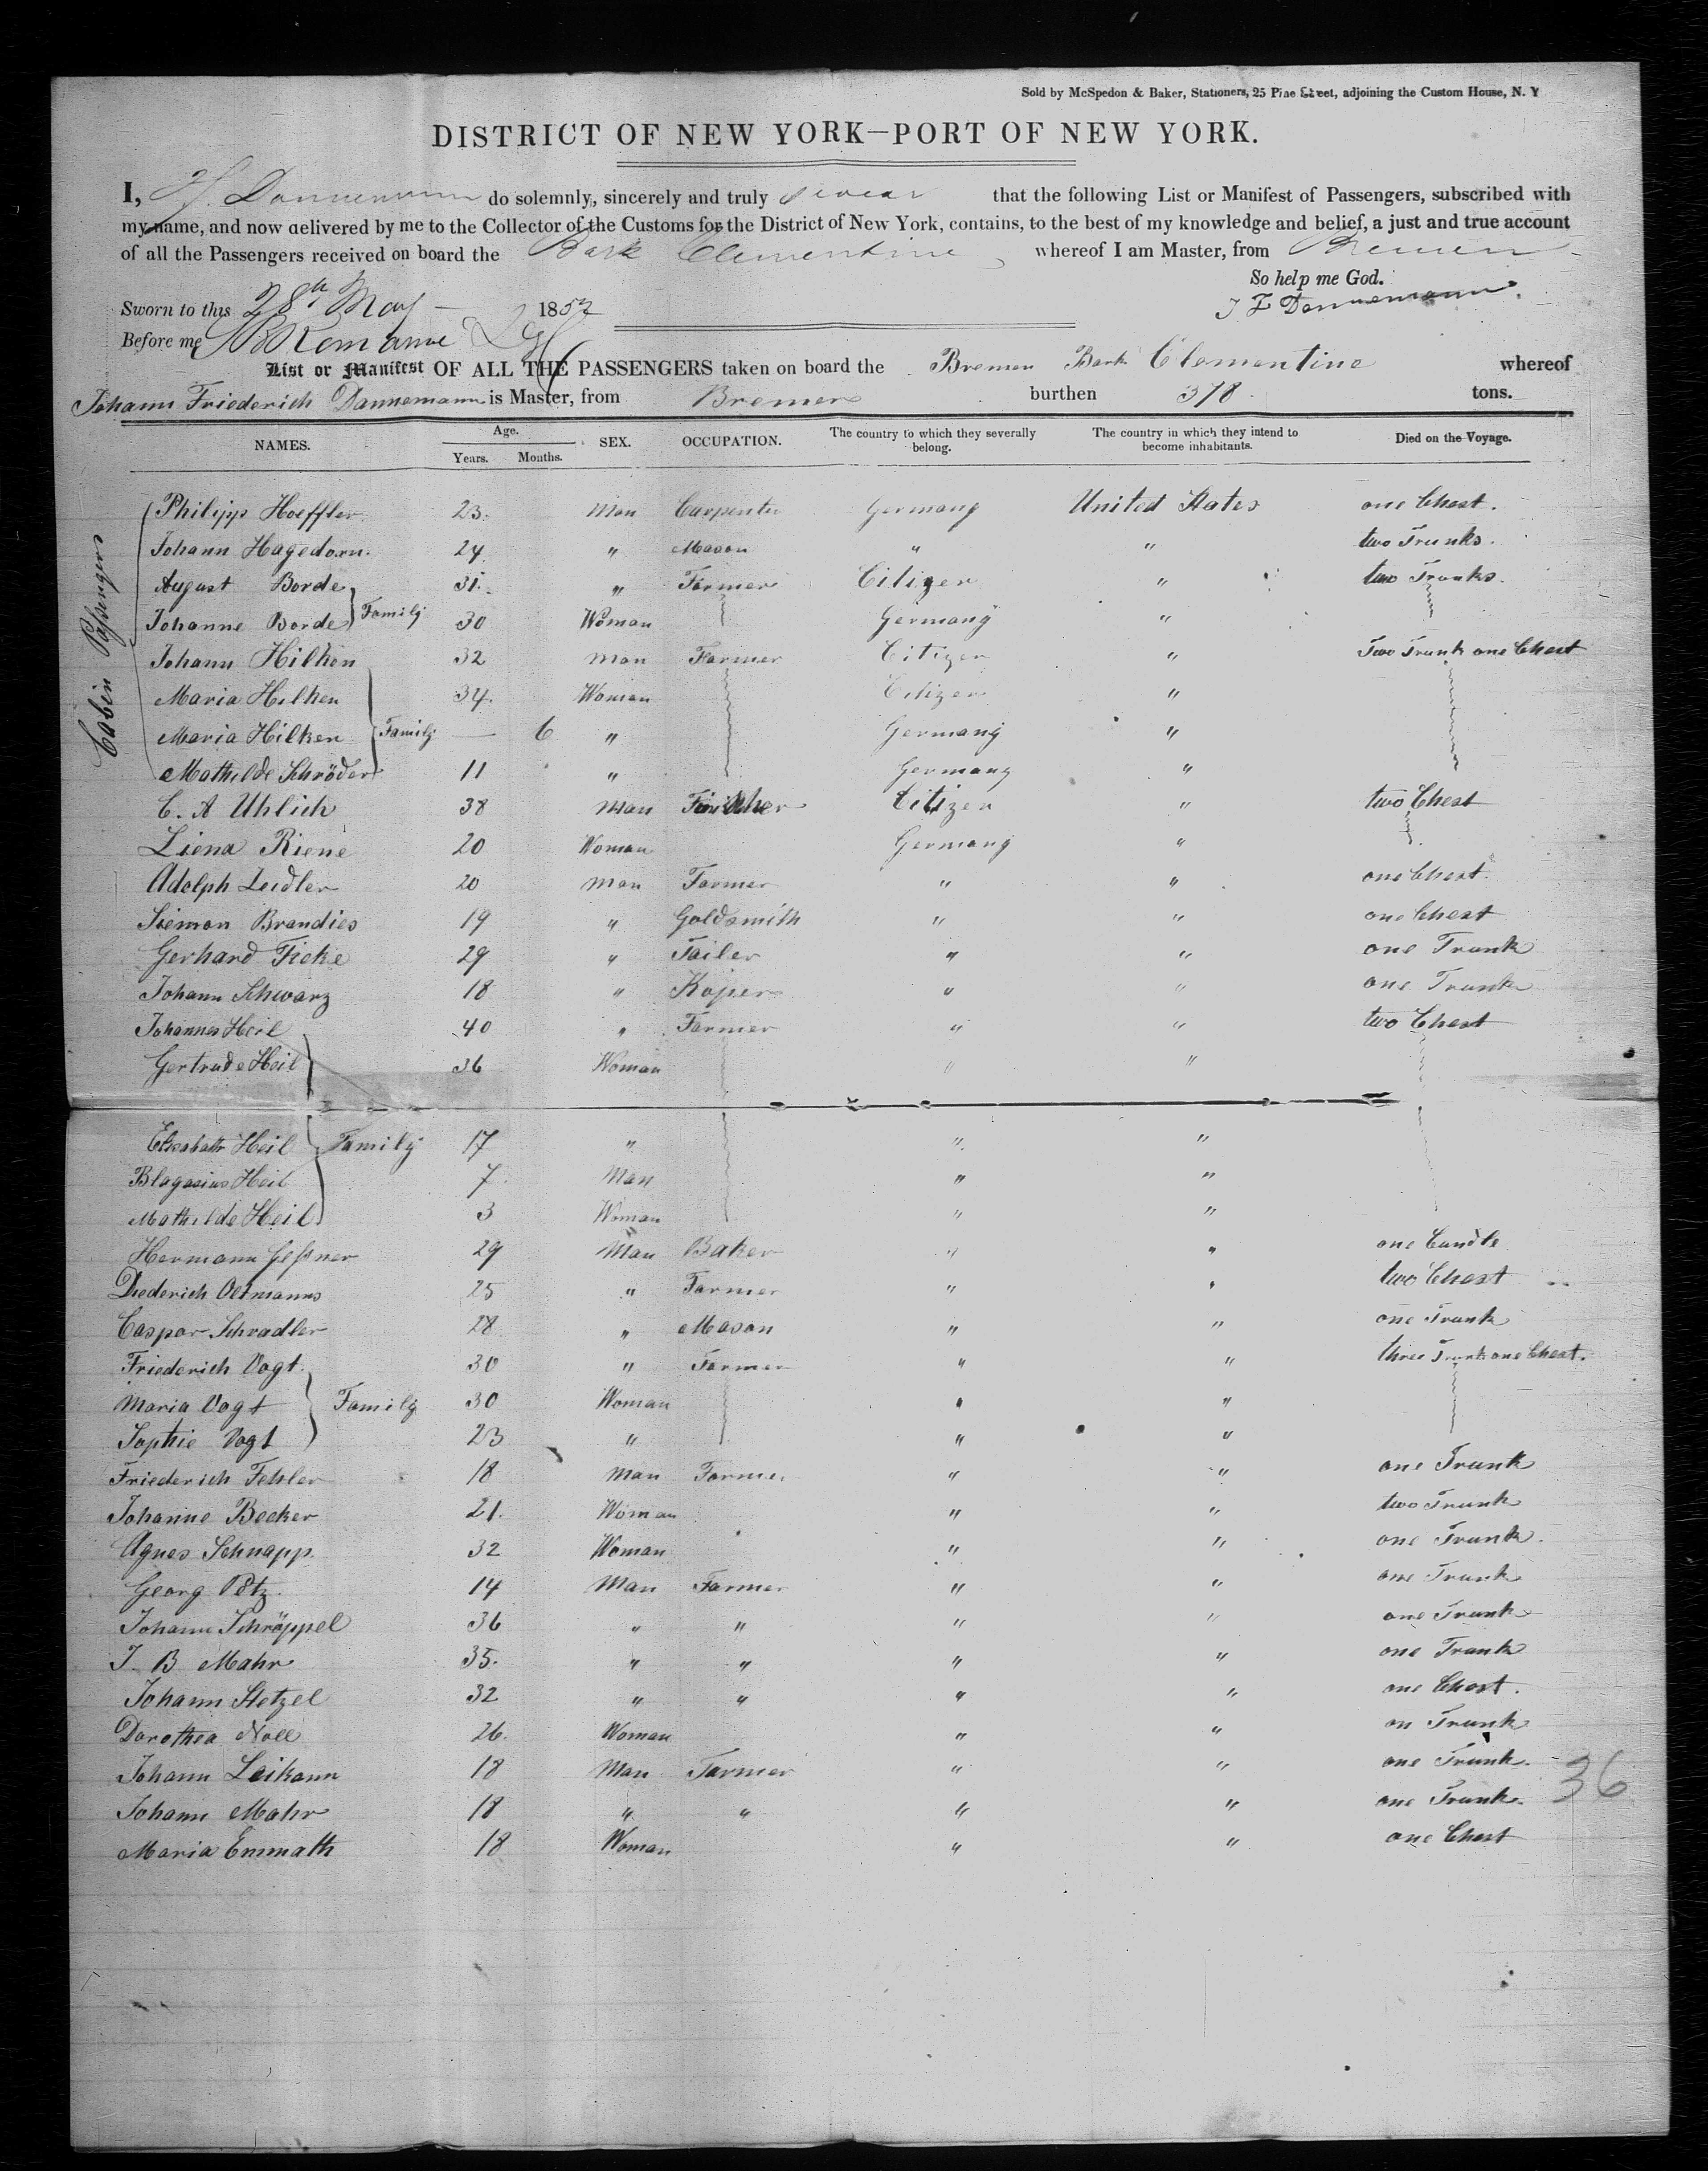 Sold by McSpedon & Baker, Stationers, 25 Pine Street, adjoining the Custom House, N. Y
DISTRICT OF NEW YORK—PORT OF NEW YORK.
I, Dannemann do solemnly, sincerely and truly swear that the following List or Manifest of Passengers, subscribed with
my name, and now delivered by me to the Collector of the Customs for the District of New York, contains, to the best of my knowledge and belief, a just and true account
of all the Passengers received on board the Bark Clementine whereof I am Master, from Bremen
So help me God.
Sworn to this 28th May 1852
J F Dannemann.
Before me
List or Manifest OF ALL THE PASSENGERS taken on board the Bremen Bark Clementine whereof
Johann Friederich Dannemann is Master, from Bremen burthen 378 tons.
NAMES. Age. Years. Months. SEX. OCCUPATION. The country to which they severally belong. The country in which they intend to become inhabitants. Died on the Voyage.
Cabin Passengers
Philipp Hoeffler 23. Man Carpenter Germany United States one Chest.
Johann Hagedorn. 24 " Mason " " two Trunks.
August Borde 31. " Farmer Citizen " two Trunks.
Johanne Borde Family 30 Woman Germany "
Johann Hilken 32 Man Farmer Citizen " Two Trunk one Chest
Maria Hilken 34. Woman Citizen "
Maria Hilken Family — 6 " Germany "
Mathilde Schröder 11 " Germany "
C. A Uhlich 38 Man Citizen " two Chest
Liena Riene 20 Woman Germany "
Adolph Leidler 20 Man Farmer " " one Chest.
Siemon Brandies 19 " Goldsmith " " one Chest
Gerhard Ficke 29 " Tailer " " one Trunk
Johann Schwarz 18 " Koper " " one Trunk
Johannes Heil 40 " Farmer " " two Chest
Gertrude Heil 36 Woman " "
Elisabath Heil Family 17 " " "
Blagasius Heil 7. Man " "
Mathilde Heil 3 Woman " "
Hermann Geßner 29 Man Baker " " one Bundle
Diederich Oltmanns 25 " Farmer " " two Chest
Caspar Schradler 28 " Mason " " one Trunk
Friederich Vogt 30 " Farmer " " three Trunk one Chest.
Maria Vogt Family 30 Woman " "
Sophie Vogt 23 " " "
Friederich Fehler 18 Man Farmer " " one Trunk
Johanne Becker 21. Woman " " two Trunk
Agnes Schnapp. 32 Woman " " one Trunk.
Georg Pötz 14 Man Farmer " " one Trunk
Johann Schröppel 36 " " " " one Trunk
J. B Mahr 35. " " " " one Trunk
Johann Stetzel 32 " " " " one Chest.
Dorothea Noll 26. Woman " " on Trunk
Johann Leikann 18 Man Farmer " " one Trunk.
Johann Mahr 18 " " " " one Trunk.
36
Maria Emmath 18 Woman " " one Chest